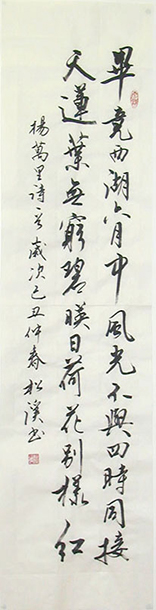 畢竟西湖六月中風光不與四時同接
天蓮葉無窮碧映日荷花別樣紅
楊萬里詩一首歲次己丑仲春松溪書